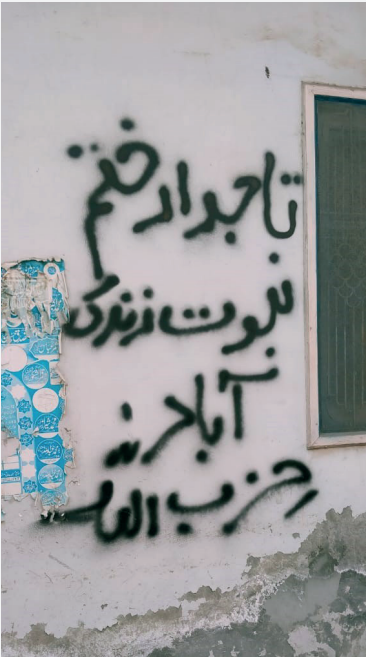 تاجدار ختم
نبوت زندگی
آباد
حزب اللہ